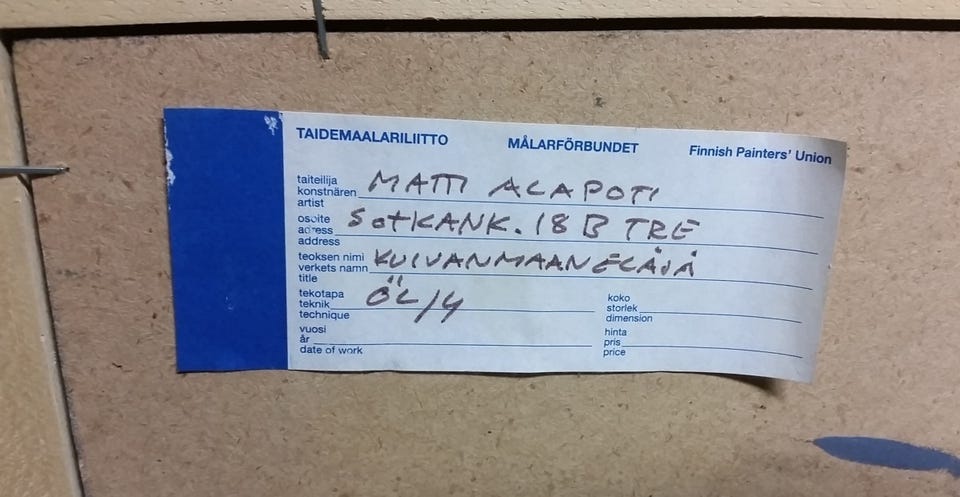 TAIDEMAALARILIITTO MÅLARFÖRBUNDET Finnish Painters' Union
taiteilija
konstnären MATTI ALAPOTI
artist
osoite
adress SOTKANK. 18 B TRE
address
teoksen nimi
verkets namn KUIVANMAANELÄJÄ
title
tekotapa koko
teknik ÖL/4 storlek
technique dimension
vuosi hinta
år pris
date of work price